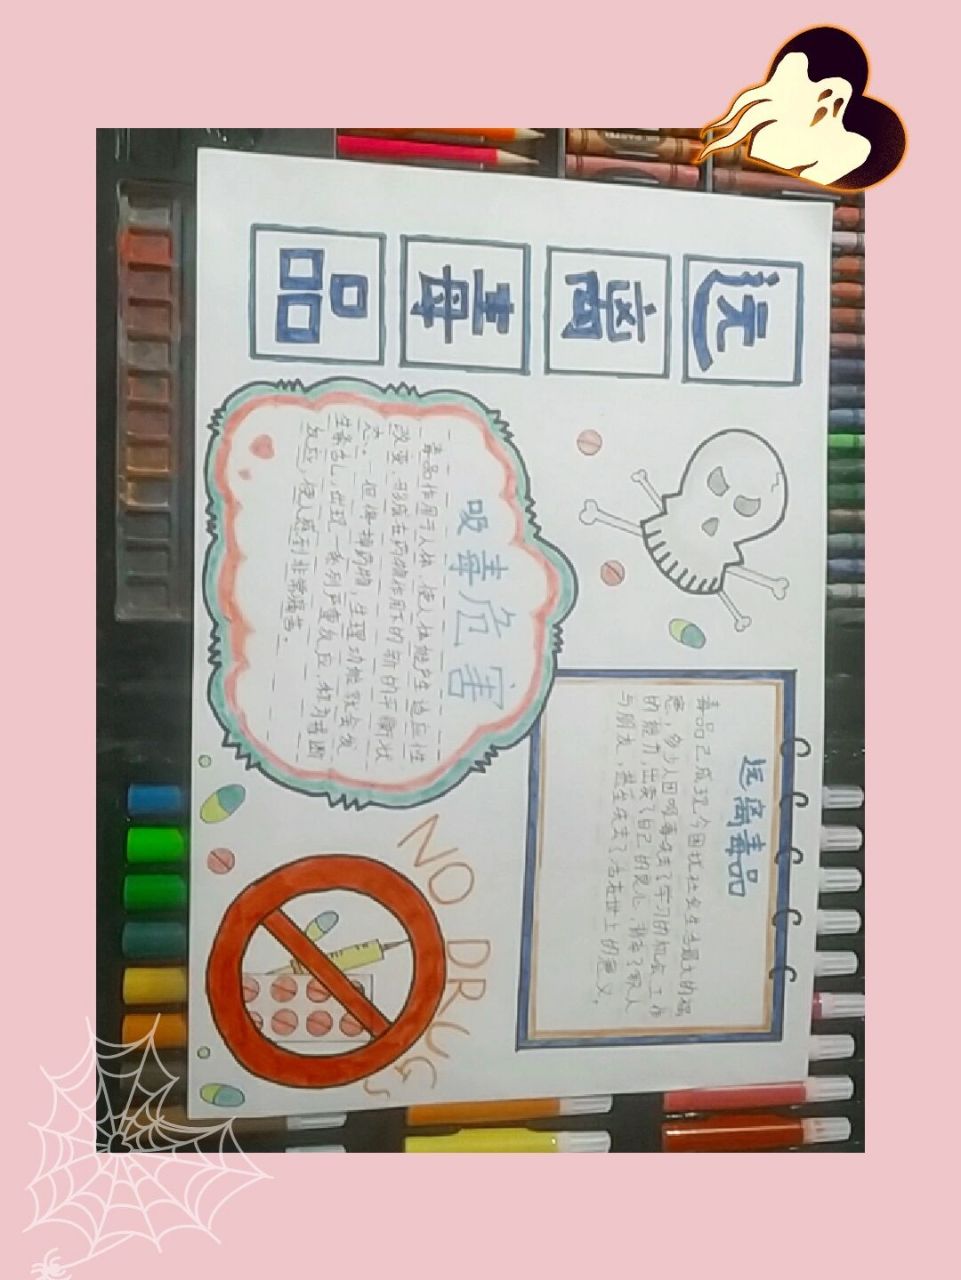 远
离
毒
品
远离毒品
毒品已成现今困扰社会生活最大的祸
患，多少人因吸毒失去了学习的机会、工作
的能力，出卖了自己的良心，背弃了家人
与朋友，甚至失去了活在世上的意义。
吸毒危害
毒品作用于人体，使人体能产生适应性
改变，形成在药物作用下的新的平衡状
态。一但停掉药物，生理功能就会发
生紊乱，出现一系列严重反应，称为戒断
反应，使人感到非常痛苦。
NO DRUGS